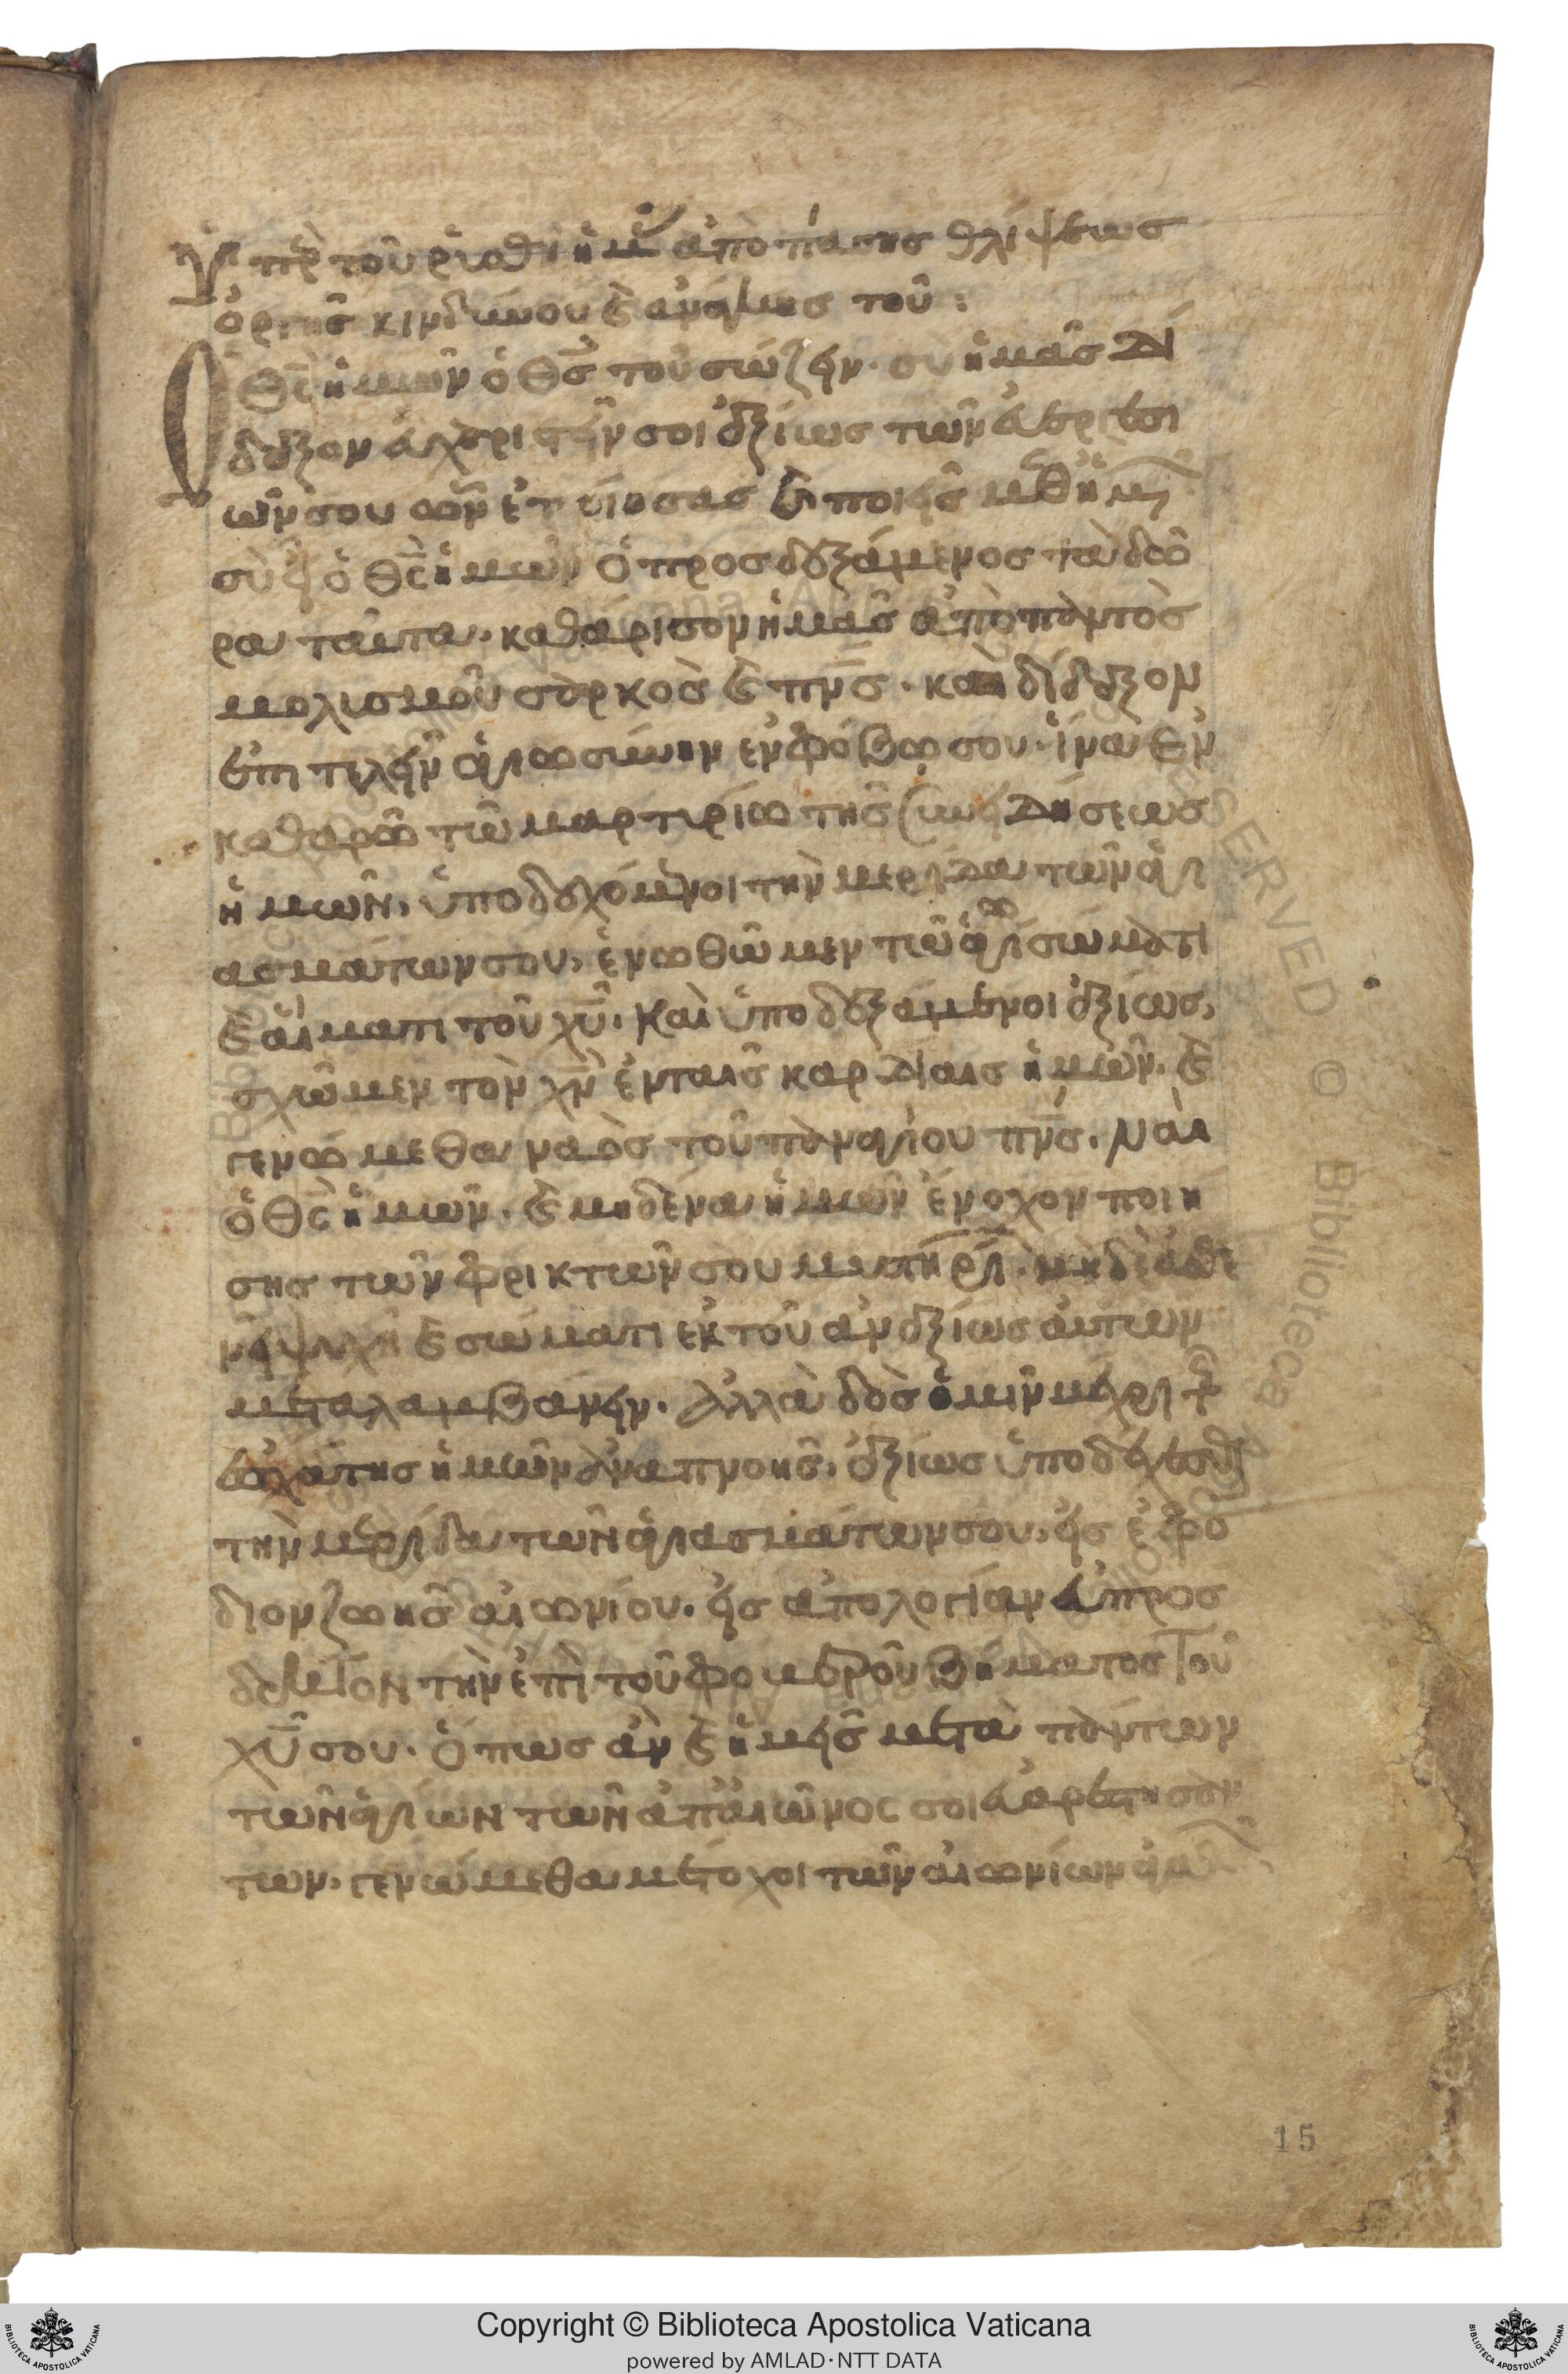 Ὑπὲρ τοῦ ῥυσθῆναι ἡμᾶς ἀπὸ πάσης θλίψεως
ὀργῆς κινδύνου (καὶ) ἀνάγκης τοῦ:
Ὁ θ(εὸ)ς ἡμῶν ὁ θ(εὸ)ς τοῦ σώζειν· σὺ ἡμᾶς δί
δαξον εὐχαριστεῖν σοι ἀξίως τῶν εὐεργεσι
ῶν σου ὧν ἐποίησας (καὶ) ποιεῖς μεθ ἡμῶν
σὺ εἶ ὁ θ(εὸ)ς ἡμῶν ὁ προσδεξάμενος τὰ δῶ
ρα ταῦτα· καθάρισον ἡμᾶς ἀπὸ παντὸς
μολισμοῦ σαρκὸς (καὶ) πν(εύματο)ς· καὶ δίδαξον
ἐπιτελεῖν ἁγιωσύνην ἐν φόβω σου· ἵνα ἐν
καθαρῶ τῶ μαρτιρίω τῆς συνειδήσεως
ἡμῶν, ὑποδεχόμενοι τὴν μερίδα τῶν ἁγι
ασμάτων σου, ἑνωθῶμεν τῶ ἁγίω σώματι
(καὶ) αἵματι τοῦ χ(ριστο)ῦ· Καὶ ὑποδεξάμενοι ἀξίως,
σχῶμεν τὸν χ(ριστὸ)ν ἐν ταῖς καρδίαις ἡμῶν· (καὶ)
γενώμεθα ναὸς τοῦ παναγίου πν(εύματο)ς· Ναὶ
ὁ θ(εὸ)ς ἡμῶν· (καὶ) μηδένα ἡμῶν ἔνοχον ποιή
σης τῶν φρικτῶν σου μυστηρίων· μηδὲ ἀσθε
νῆ ψυχῆ (καὶ) σώματι ἐκ τοῦ ἀναξίως αὐτῶν
μεταλαμβάνειν· Ἀλλὰ δὸς ἡμῖν μέχρι τῆς
ἐσχάτης ἡμῶν ἀναπνοῆς, ἀξίως ὑποδέχεσθαι
τὴν μερίδα τῶν ἁγιασμάτων σου, εἰς ἐφό
διον ζωῆς αἰωνίου· εἰς ἀπολογίαν εὐπρόσ
δεκτον τὴν ἐπὶ τοῦ φοβεροῦ βήματος τοῦ
χ(ριστο)ῦ σου· Ὅπως ἂν (καὶ) ἡμεῖς μετὰ πάντων
τῶν ἁγίων τῶν ἀπ αἰῶνος σοι εὐαρεστησάν
των· γενώμεθα μέτοχοι τῶν αἰωνίων ἀγαθῶν
15
Copyright © Biblioteca Apostolica Vaticana
powered by AMLAD·NTT DATA